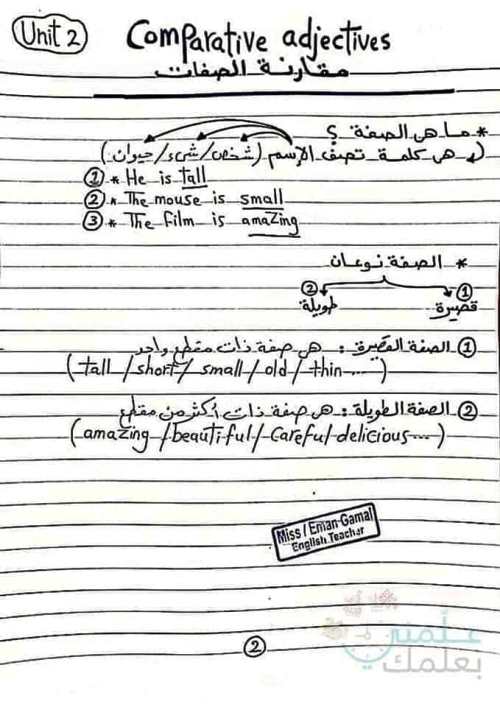 Unit 2
Comparative adjectives
مقارنة الصفات
* ما هى الصفة ؟
هى كلمة تصف الإسم (شخص/شىء/حيوان)
① * He is tall
② * The mouse is small
③ * The film is amazing
* الصفة نوعان
① قصيرة
② طويلة
① الصفة القصيرة : هى صفة ذات مقطع واحد
(tall / short / small / old / thin ...)
② الصفة الطويلة : هى صفة ذات أكثر من مقطع
(amazing / beautiful / careful delicious ...)
Miss / Eman Gamal
English Teacher
②
علمني
بعلمك